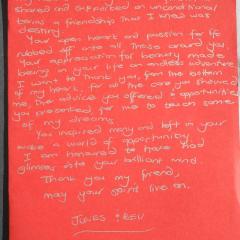 shared and supported on unconditional
terms a friendship that I knew was
destiny.
Your open heart and passion for life
rubbed off onto all those around you
Your appreciation for beauty made
being in your life an endless adventure
I want to thank you, from the bottom
of my heart, for all the care you showed
me, the advice you offered & opportunities
you presented for me to touch some
of my dreams.
You inspired many and left in your
wake a world of opportunity.
I am honoured to have had
glimpses into your brilliant mind.
Thank you my friend,
may your spirit live on.